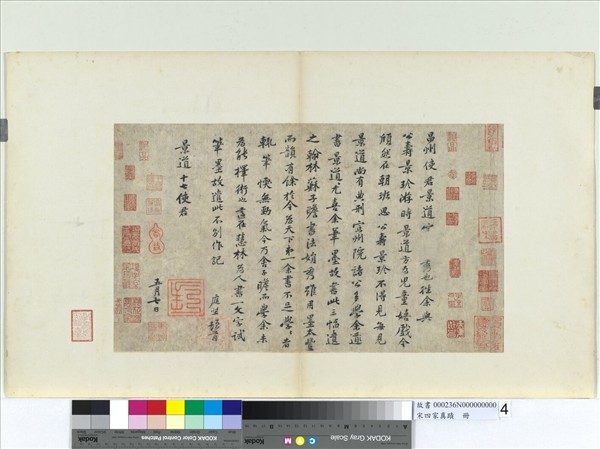 昌州使君景道宗秀也往余與
公壽景珍游時景道方為兒童嬉戲今
頎然在朝班思公壽景珍不得見每見
景道尚有典刑宣州院諸公多學余
書景道尤喜余筆墨故書此三幅遺
之翰林蘇子瞻書法娟秀雖用墨太豐
而韻有餘於今為天下第一余書不足學學者
輒筆愞無勁氣今乃舍子瞻而學余未
為能擇術也適在慧林為人書一文字試
筆墨故遣此不別作記 庭堅頓首
景道十七使君
五月七日
故書 000236N000000000
宋四家真蹟 冊
4
Kodak Color Control Patches
KODAK Gray Scale
C Y M
Kodak